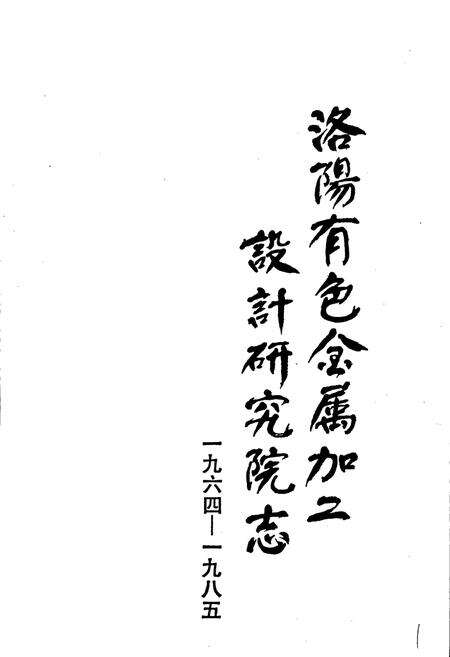 洛陽有色金属加工
設計研究院志
一九六四—一九八五